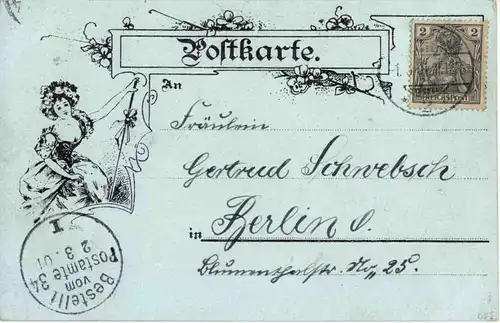 Postkarte.
2
REICHSPOST
An
Fräulein
Gertrud Schwebsch
in Berlin O.
Blumenthalstr. No. 25.
Bestellt
vom
Postamte 34
2 3.01
I